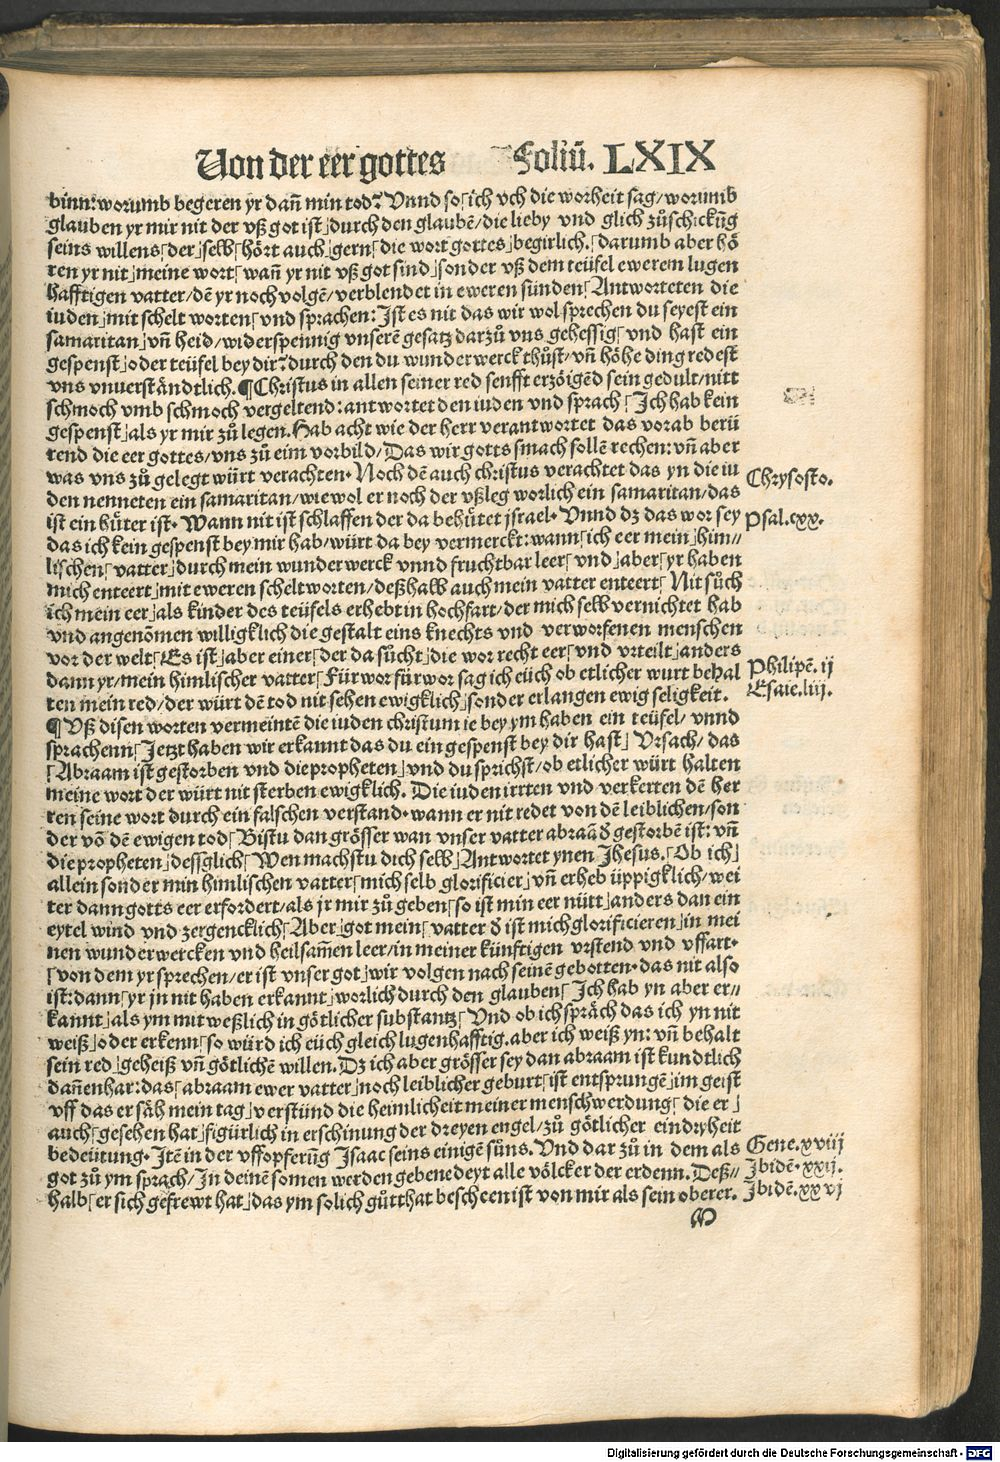 Von der eer gottes Foliū. LXIX
binn: worumb begeren yr dañ min tod? Vnnd so⌈ich vch die worheit sag/worumb
glauben yr mir nit der vß got ist⌋durch den glaubē/die lieby vnd glich zůschickūg
seins willens⌈der⌋selb⌈hört auch⌋gern⌈die wort gottes⌋begirlich.⌈darumb aber hö
ren yr nit⌋meine wort⌈wañ yr nit vß got sind⌋sonder vß dem teüfel ewerem lugen
hafftigen vatter/dē yr noch volgē/verblendet in eweren sünden⌈Antworteten die
iuden⌋mit schelt worten⌈vnd sprachen: Ist es nit das wir wol sprechen du seyest ein
samaritan⌋vñ heid/widerspennig vnserē gesatz darzů vns gehessig⌈vnd hast ein
gespenst⌋oder teüfel bey dir? durch den du wunderwerck thůst/vñ höhe ding redest
vns vnuerständtlich. ¶Christus in allen seiner red senfft erzöigēd sein gedult/nitt
schmoch vmb schmoch vergeltend: antwortet den iuden vnd sprach⌈Ich hab kein
gespenst⌋als yr mir zů legen. Hab acht wie der herr verantwortet das vorab berü
rend die eer gottes/vns zů eim vorbild/Das wir gotts smach sollē rechen: vñ aber
was vns zů gelegt würt verachten. Noch dē auch christus verachtet das yn die iu
den nenneten ein samaritan/wiewol er noch der vßleg worlich ein samaritan/das
ist ein hüter ist. Wann nit ist schlaffen der da behütet jsrael. Vnnd dz das wor sey
das ich kein gespenst bey mir hab/würt da bey vermerckt: wann⌈ich eer mein⌋him//
lischen⌈vatter⌋durch mein wunderwerck vnnd fruchtbar leer⌈vnd⌋aber⌈yr haben
mich enteert⌋mit eweren scheltworten/deßhalb auch mein vatter enteert⌈Nit sůch
ich mein eer⌋als kinder des teüfels erhebt in hochfart/der mich selb vernichtet hab
vnd angenōmen willigklich die gestalt eins knechts vnd verworfenen menschen
vor der welt⌈Es ist⌋aber einer⌈der da sůcht⌋die wor recht eer⌈vnd vrteilt⌋anders
dann yr/mein himlischer vatter⌈Fürwor fürwor sag ich eüch ob etlicher wurt behal
ten mein red/der würt dē tod nit sehen ewigklich⌋sonder erlangen ewig seligkeit.
¶Vß disen worten vermeintē die iuden christum ie bey ym haben ein teüfel/vnnd
sprachenn⌈Jetzt haben wir erkannt das du ein gespenst bey dir hast⌋Vrsach/das
⌈Abraam ist gestorben vnd die propheten⌋vnd du sprichst/ob etlicher würt halten
meine wort der würt nit sterben ewigklich. Die iuden irrten vnd verkerten dē her
ren seine wort durch ein falschen verstand. wann er nit redet von dē leiblichen/son
der vō dē ewigen tod⌈Bistu dan grösser wan vnser vatter abraā ð gestorbē ist: vñ
die propheten⌋dessglich⌈Wen machstu dich selb⌋Antwortet ynen Jhesus.⌈Ob ich⌋
allein sonder min himlischen vatter⌈mich selb glorificier⌋vñ erheb üppigklich/wei
ter dann gotts eer erfordert/als jr mir zů geben⌈so ist min eer nütt⌋anders dan ein
eytel wind vnd zergencklich⌈Aber⌋got mein⌈vatter ð ist mich glorificieren⌋in mei
nen wunderwercken vnd heilsam̄en leer/in meiner künftigen vrstend vnd vffart.
⌈von dem yr sprechen/er ist vnser got⌋wir volgen nach seinē gebotten. das nit also
ist: dann⌈yr jn nit haben erkannt⌋worlich durch den glauben⌈Ich hab yn aber er//
kannt⌋als ym mit weßlich in götlicher substantz⌈Vnd ob ich spräch das ich yn nit
weiß⌋oder erkenn⌈so würd ich eüch gleich lugenhafftig. aber ich weiß yn: vñ behalt
sein red⌋geheiß vñ götlichē willen. Dz ich aber grösser sey dan abraam ist kundtlich
dañenhar: das⌈abraam ewer vatter⌋noch leiblicher geburt⌈ist entsprungē⌋im geist
vff das er säh mein tag⌋verstünd die heimlicheit meiner menschwerdung⌈die er⌋
auch⌈gesehen hat⌋figürlich in erschinung der dreyen engel/zů götlicher eindryheit
bedeütung. Itē in der vffopferūg Isaac seins einigē sůns. Vnd dar zů in dem als
got zů ym sprach/In deinē somen werden gebenedeyt alle völcker der erdenn. Deß//
halb⌈er sich gefrewt hat⌋das ym solich gůtthat bescheen ist von mir als sein oberer.
M
Chrysosto.
Psal.cxx.
Philipē.ij
Esaie.liij.
Gene.xviij
Jbidē.xxij.
Jbidē.xxvj
Digitalisierung gefördert durch die Deutsche Forschungsgemeinschaft - DFG